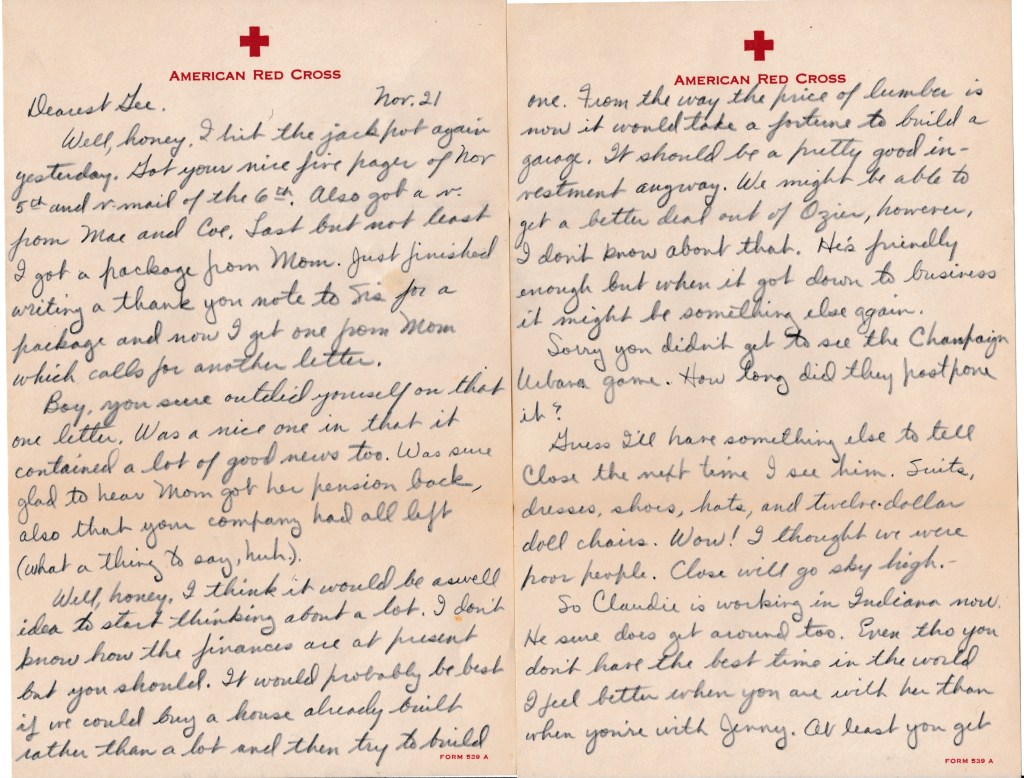 AMERICAN RED CROSS
Dearest Gee. Nov. 21
Well, honey, I hit the jackpot again
yesterday. Got your nice five pager of Nov
5th and v-mail of the 6th. Also got a v.
from Mae and Coe. Last but not least
I got a package from Mom. Just finished
writing a thank you note to Sis for a
package and now I get one from Mom
which calls for another letter.
Boy, you sure outdid yourself on that
one letter. Was a nice one in that it
contained a lot of good news too. Was sure
glad to hear Mom got her pension back,
also that your company had all left
(what a thing to say, huh.).
Well, honey, I think it would be a swell
idea to start thinking about a lot. I don't
know how the finances are at present
but you should. It would probably be best
if we could buy a house already built
rather than a lot and then try to build
FORM 539 A
AMERICAN RED CROSS
one. From the way the price of lumber is
now it would take a fortune to build a
garage. It should be a pretty good in-
vestment anyway. We might be able to
get a better deal out of Ozier, however,
I don't know about that. He's friendly
enough but when it got down to business
it might be something else again.
Sorry you didn't get to see the Champaign
Urbana game. How long did they postpone
it?
Guess I'll have something else to tell
Close the next time I see him. Suits,
dresses, shoes, hats, and twelve-dollar
doll chairs. Wow! I thought we were
poor people. Close will go sky high.-
So Claudie is working in Indiana now.
He sure does get around too. Even tho you
don't have the best time in the world
I feel better when you are with her than
when you're with Jenny. At least you get
FORM 539 A